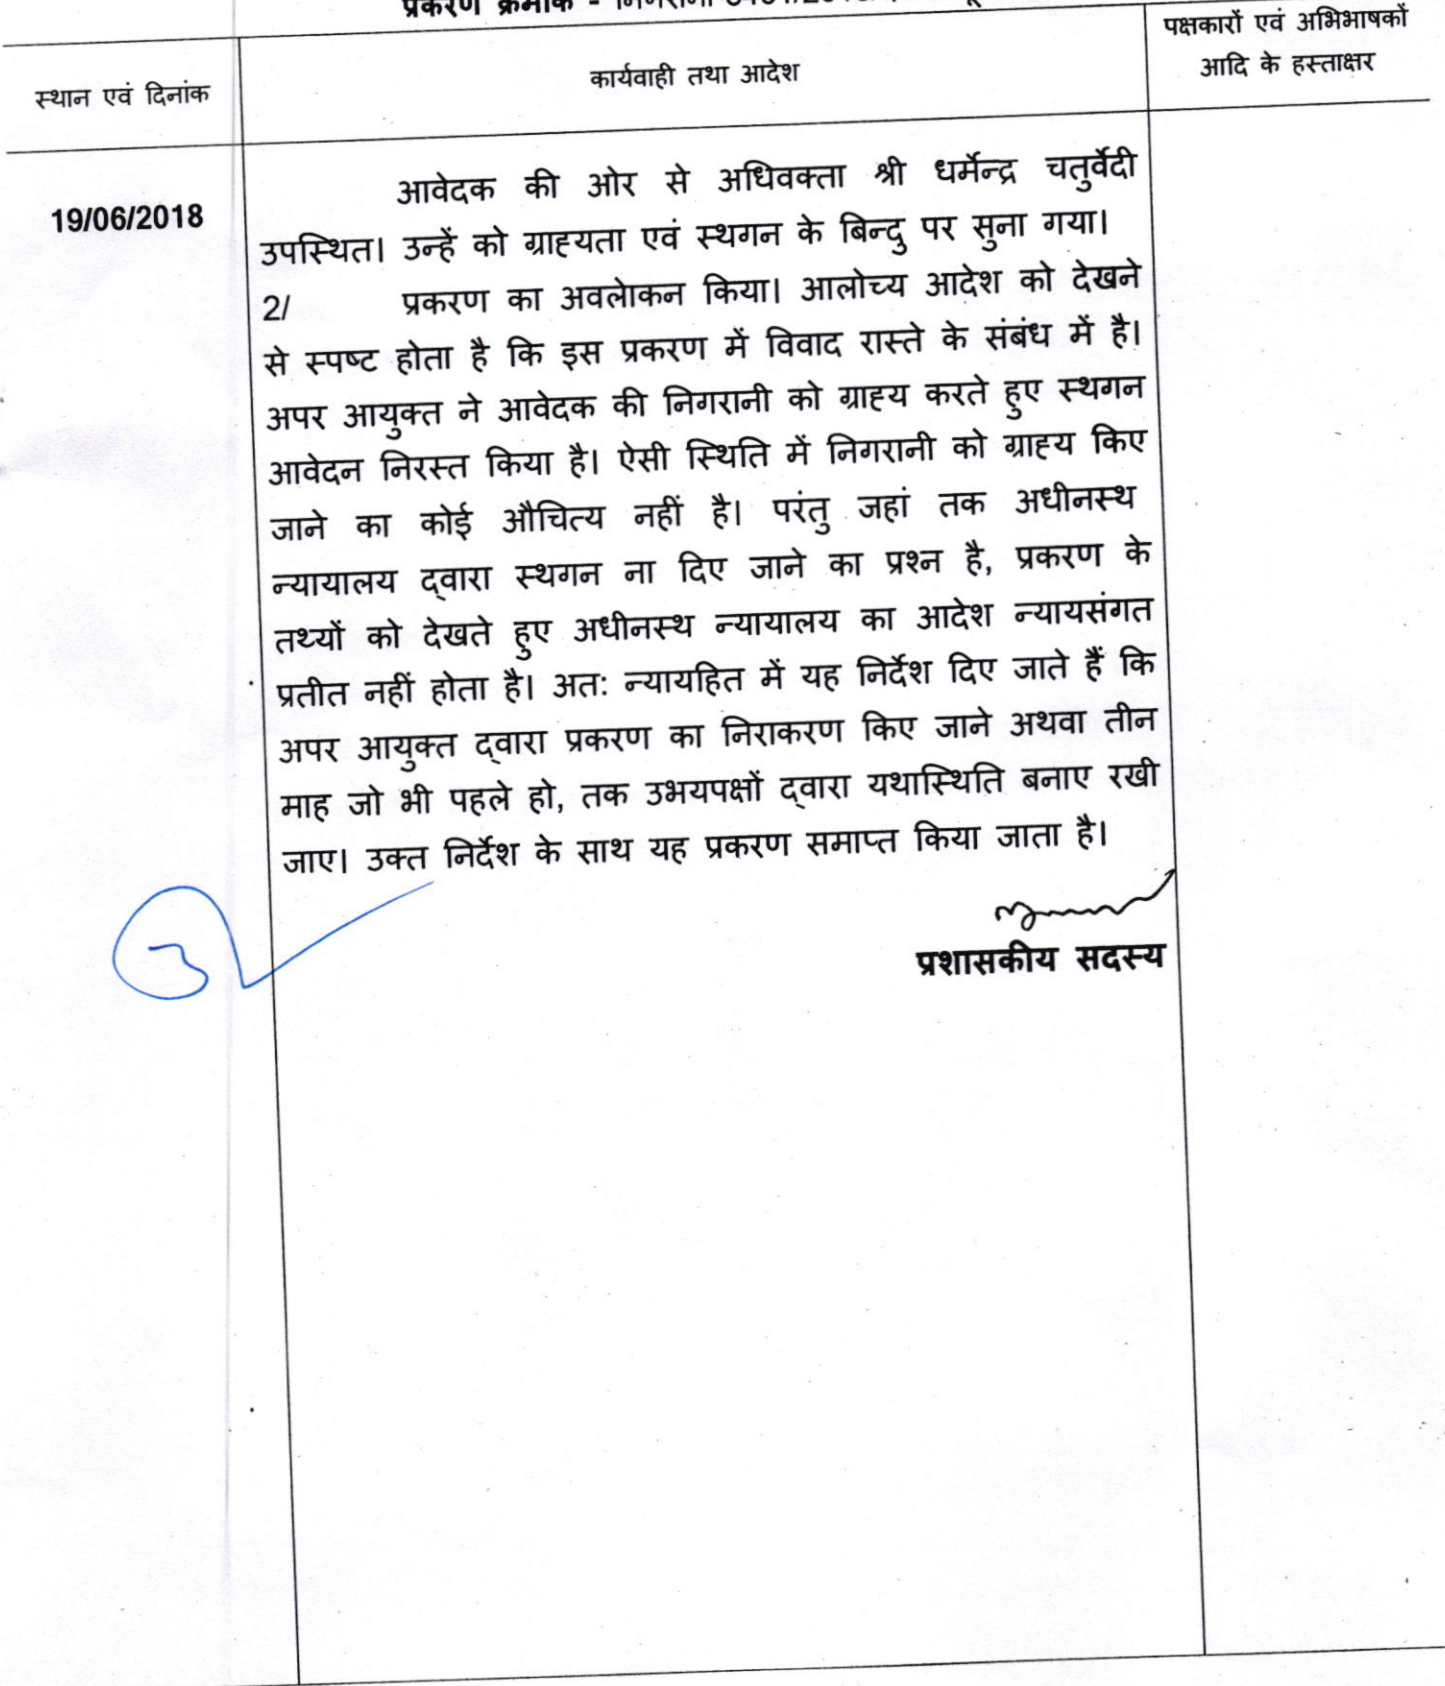 प्रकरण क्रमांक - निगरानी
स्थान एवं दिनांक
कार्यवाही तथा आदेश
पक्षकारों एवं अभिभाषकों
आदि के हस्ताक्षर
19/06/2018
आवेदक की ओर से अधिवक्ता श्री धर्मेन्द्र चतुर्वेदी
उपस्थित। उन्हें को ग्राह्यता एवं स्थगन के बिन्दु पर सुना गया।
2/ प्रकरण का अवलेाकन किया। आलोच्य आदेश को देखने
से स्पष्ट होता है कि इस प्रकरण में विवाद रास्ते के संबंध में है।
अपर आयुक्त ने आवेदक की निगरानी को ग्राह्य करते हुए स्थगन
आवेदन निरस्त किया है। ऐसी स्थिति में निगरानी को ग्राह्य किए
जाने का कोई औचित्य नहीं है। परंतु जहां तक अधीनस्थ
न्यायालय द्वारा स्थगन ना दिए जाने का प्रश्न है, प्रकरण के
तथ्यों को देखते हुए अधीनस्थ न्यायालय का आदेश न्यायसंगत
प्रतीत नहीं होता है। अत: न्यायहित में यह निर्देश दिए जाते हैं कि
अपर आयुक्त द्वारा प्रकरण का निराकरण किए जाने अथवा तीन
माह जो भी पहले हो, तक उभयपक्षों द्वारा यथास्थिति बनाए रखी
जाए। उक्त निर्देश के साथ यह प्रकरण समाप्त किया जाता है।
प्रशासकीय सदस्य